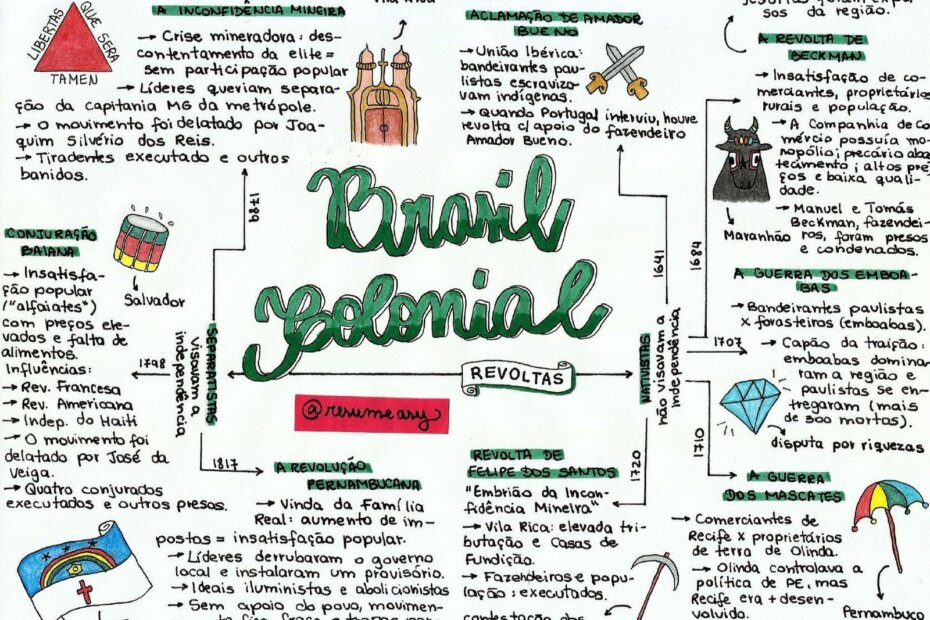 A INCONFIDÊNCIA MINEIRA
LIBERTAS QUE SERA
TAMEN
→ Crise mineradora: des-
contentamento da elite =
sem participação popular
→ Líderes queriam separa-
ção da capitania MG da metrópole.
→ O movimento foi delatado por Joa-
quim Silvério dos Reis.
→ Tiradentes executado e outros
banidos.
1789
ACLAMAÇÃO DE AMADOR
BUENO
→ União Ibérica:
bandeirantes pau-
listas escraviza-
vam indígenas.
→ Quando Portugal interviu, houve
revolta c/ apoio do fazendeiro
Amador Bueno.
1641
sos da região.
A REVOLTA DE
BECKMAN
→ Insatisfação de co-
merciantes, proprietários
rurais e população.
→ A Companhia de Co
mércio possuía mo-
nopólio; precário abas
tecimento; altos pre
ços e baixa quali-
dade.
→ Manuel e Tomás
Beckman, fazendei-
ros, foram presos
e condenados.
Maranhão
1684
Brasil
Colonial
REVOLTAS
@resumeasy
CONJURAÇÃO
BAIANA
→ Insatisfa-
ção popular
("alfaiates")
com preços ele-
vados e falta de
alimentos.
Influências:
→ Rev. Francesa
→ Rev. Americana
→ Indep. do Haiti
→ O movimento foi
delatado por José da
Veiga.
→ Quatro conjurados
executados e outros presos.
Salvador
1798
SEPARATISTAS
visavam a
independência
NATIVISTAS
não visavam a
independência
A GUERRA DOS EMBOA-
BAS
→ Bandeirantes paulistas
x forasteiros (emboabas).
→ Capão da traição:
emboabas domina-
ram a região e
paulistas se en-
tregaram (mais
de 300 mortos).
disputa por riquezas
1707
1817
A REVOLUÇÃO
PERNAMBUCANA
→ Vinda da Família
Real: aumento de im-
postas = insatisfação popular.
→ Líderes derrubaram o governo
local e instalaram um provisório.
→ Ideais iluministas e abolicionistas
→ Sem apoio do povo, movimen-
REVOLTA DE
FELIPE DOS SANTOS
"Embrião da Incon-
fidência Mineira"
→ Vila Rica: elevada tri-
butação e Casas de
Fundição.
→ Fazendeiros e popu-
lação: executados.
1720
1710
A GUERRA
DOS MASCATES
→ Comerciantes de
Recife x proprietários
de terra de Olinda.
→ Olinda controlava a
política de PE, mas
Recife era + desen-
volvido.
Pernambuco